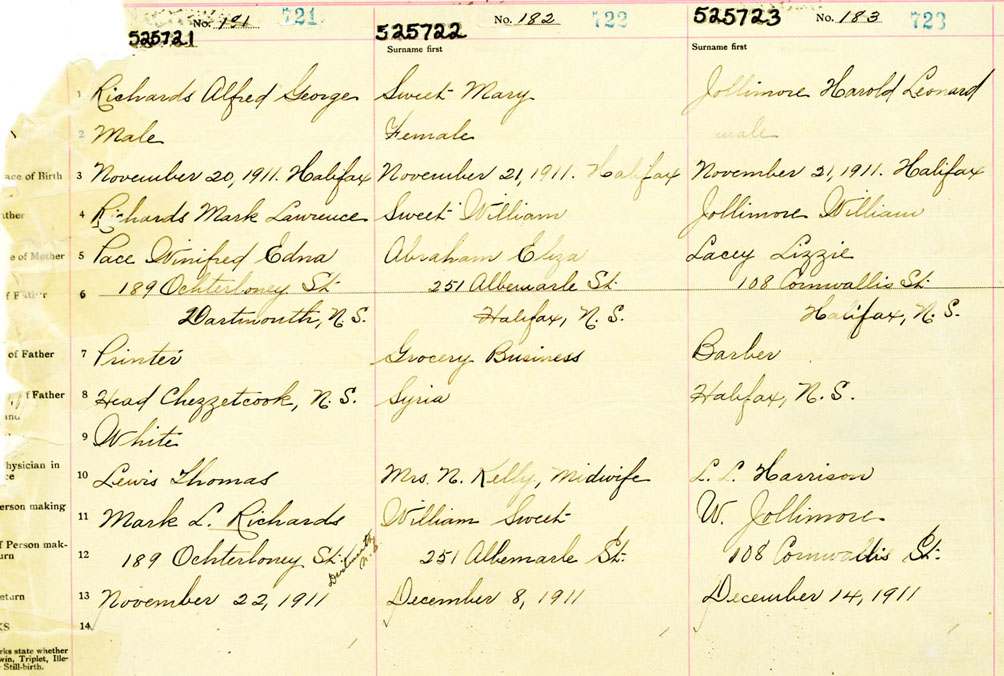 No. 181 721
525721
Richards Alfred George
Male
November 20, 1911. Halifax
Richards Mark Lawrence
Pace Winifred Edna
189 Ochterloney St.
Dartmouth, N. S.
Printer
Head Chezzetcook, N. S.
White
Lewis Thomas
Mark L. Richards
189 Ochterloney St. Dartmouth N. S.
November 22, 1911
525722 No. 182 722
Surname first
Sweet Mary
Female
November 21, 1911. Halifax
Sweet William
Abraham Eliza
251 Albemarle St.
Halifax, N. S.
Grocery Business
Syria
Mrs. N. Kelly, Midwife
William Sweet
251 Albemarle St.
December 8, 1911
525723 No. 183 723
Surname first
Jollimore Harold Leonard
male
November 21, 1911. Halifax
Jollimore William
Lacey Lizzie
108 Cornwallis St.
Halifax, N. S.
Barber
Halifax, N. S.
L. L. Harrison
W. Jollimore
108 Cornwallis St.
December 14, 1911
1
2
ace of Birth 3
ather 4
e of Mother 5
f Father 6
of Father 7
f Father 8
and 9
hysician in
ce 10
erson making
11
f Person mak-
urn 12
eturn 13
KS 14
rks state whether
win, Triplet, Ille-
Still-birth.